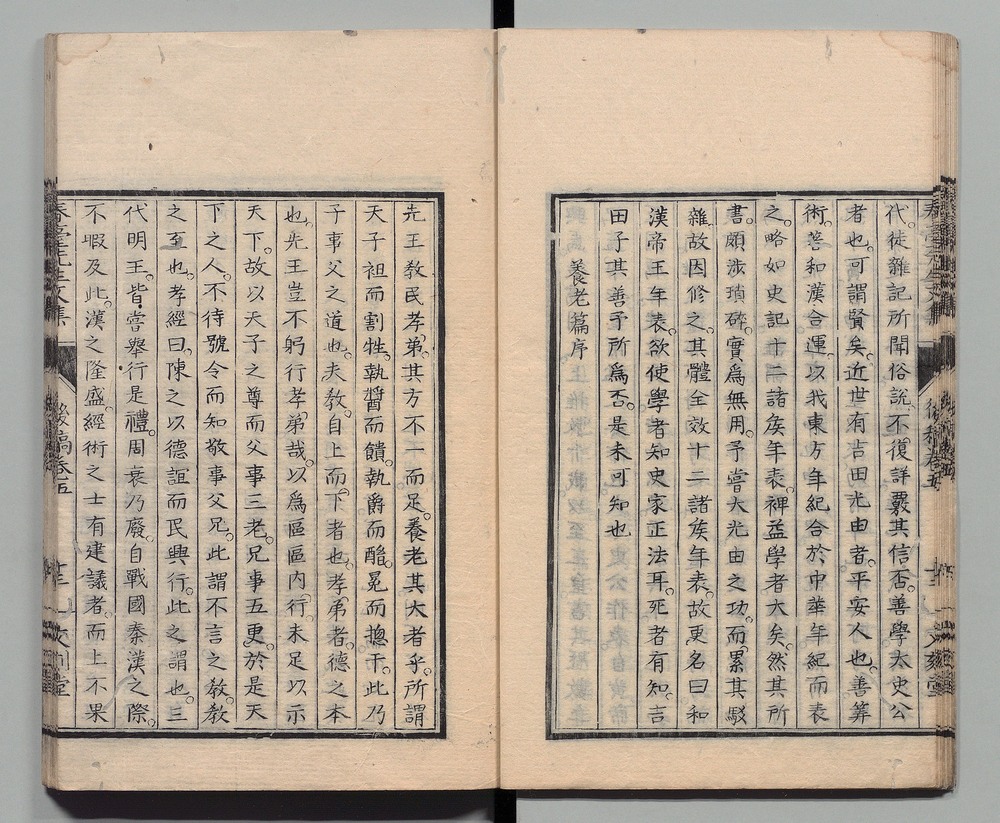 代。徒雜記所聞俗說。不復詳覈其信否。善學太史公
者也。可謂賢矣。近世有吉田光由者。平安人也。善筭
術。善和漢合運。以我東方年紀合於中華年紀而表
之。略如史記十二諸矦年表。裨益學者大矣。然其所
書。頗涉瑣碎。實爲無用。予嘗大光由之功。而累其駁
雜。故因修之。其體全效十二諸矦年表。故更名曰和
漢帝王年表。欲使學者知史家正法耳。死者有知。吉
田子其善予所爲否。是未可知也
養老篇序
先王敎民孝弟。其方不一而足。養老其大者乎。所謂
天子袒而割牲。執醬而饋。執爵而酳。冕而摠干。此乃
子事父之道也。夫敎。自上而下者也。孝弟者。德之本
也。先王豈不躬行孝弟哉。以爲區區內行。未足以示
天下。故以天子之尊而父事三老。兄事五更。於是天
下之人。不待號令而知敬事父兄。此謂不言之敎。敎
之至也。孝經曰。陳之以德誼而民興行。此之謂也。三
代明王。皆嘗舉行是禮。周衰乃廢。自戰國秦漢之際。
不暇及此。漢之隆盛。經術之士有建議者。而上不果
春臺先生文集
後稿卷五